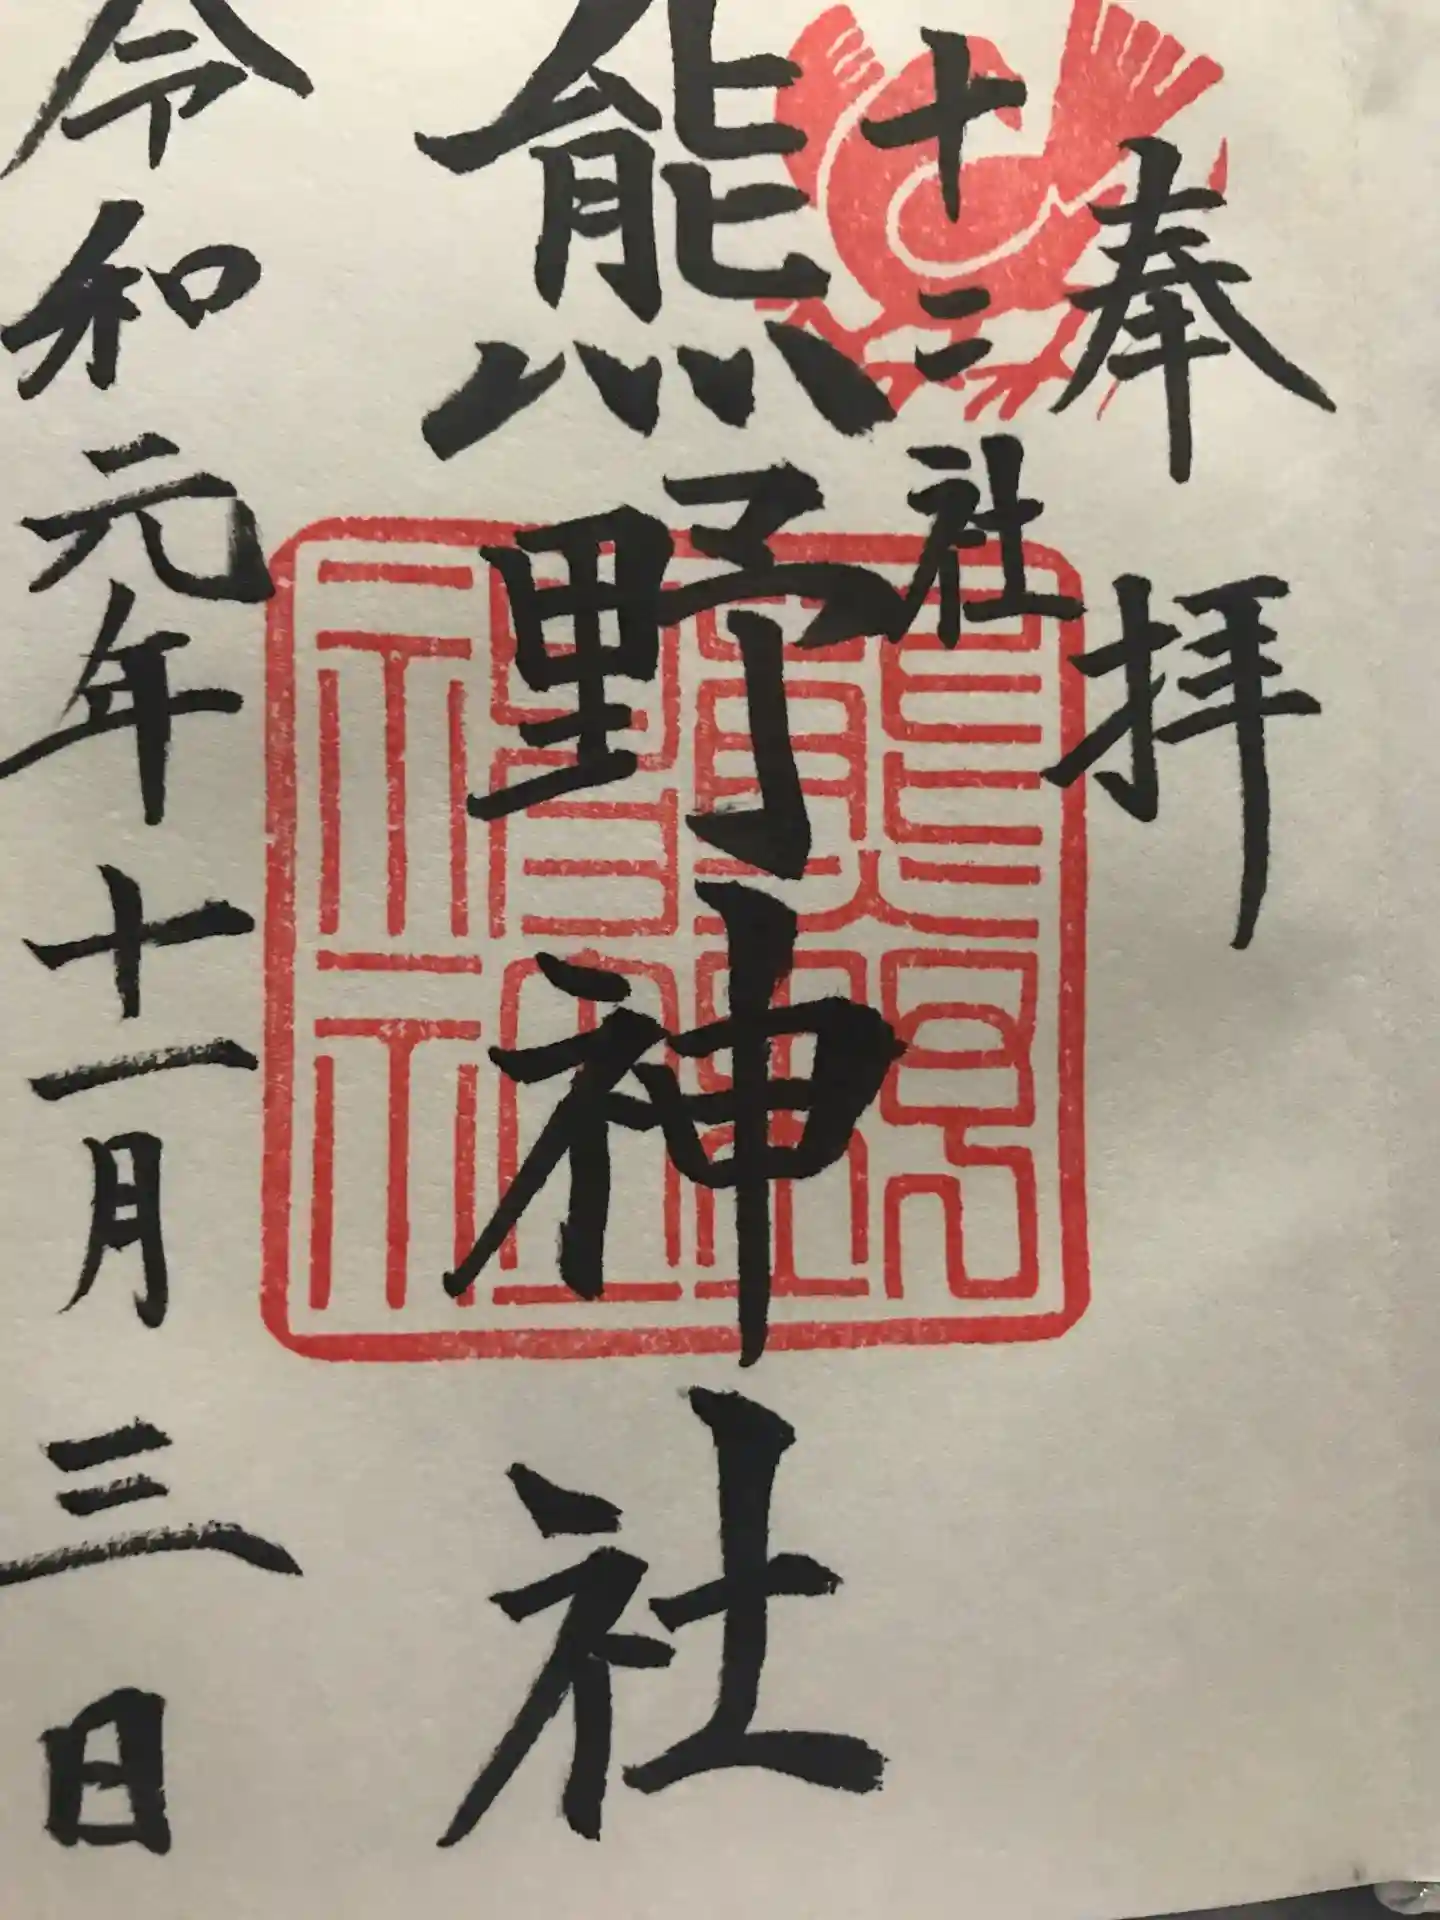 奉拝
十二社
熊野神社
令和元年十一月三日